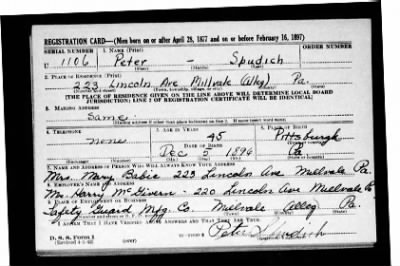 REGISTRATION CARD—(Men born on or after April 28, 1877 and on or before February 16, 1897)
SERIAL NUMBER 1. NAME (Print) ORDER NUMBER
U 1106 Peter - Spudich
(First) (Middle) (Last)
2. PLACE OF RESIDENCE (Print)
223 Lincoln Ave Millvale (Alleg) Pa.
(Number and street) (Town, township, village, or city) (County) (State)
[THE PLACE OF RESIDENCE GIVEN ON THE LINE ABOVE WILL DETERMINE LOCAL BOARD
JURISDICTION; LINE 2 OF REGISTRATION CERTIFICATE WILL BE IDENTICAL]
3. MAILING ADDRESS
Same
4. TELEPHONE 5. AGE IN YEARS 6. PLACE OF BIRTH
none 45 Pittsburgh
DATE OF BIRTH
Dec 5 1896 Pa
7. NAME AND ADDRESS OF PERSON WHO WILL ALWAYS KNOW YOUR ADDRESS
Mrs. Mary Babic 223 Lincoln Ave Millvale Pa.
8. EMPLOYER'S NAME AND ADDRESS
Mr. Harry McGivern - 220 Lincoln Ave Millvale Pa
9. PLACE OF EMPLOYMENT OR BUSINESS
Safety Guard Mfg. Co. Millvale Alleg Pa.
I AFFIRM THAT I HAVE VERIFIED ABOVE ANSWERS AND THAT THEY ARE TRUE.
D. S. S. Form 1
(Revised 4-1-42) (over) Peter Spudich